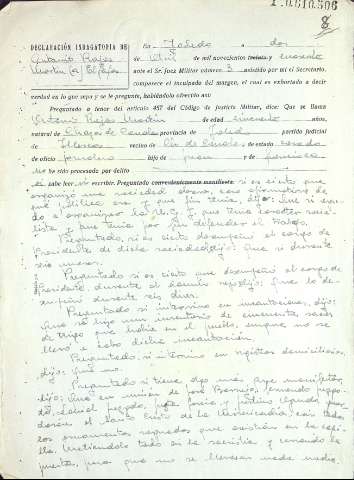 8
DECLARACIÓN INDAGATORIA DE En Toledo a dos
Antonio Rojas de de mil novecientos cuarenta
Martín (a) ante el Sr. Juez Militar número 3 asistido por mí el Secretario,
comparece el inculpado del margen, el cual es exhortado a decir
verdad en lo que sepa y se le pregunte, habiéndolo ofrecido así:
Preguntado a tenor del artículo 457 del Código de Justicia Militar, dice: Que se llama
Antonio Rojas Martín de edad cincuenta años,
natural de provincia de Toledo partido judicial
de Illescas vecino de de estado casado
de oficio jornalero hijo de Juan y de
no ha sido procesado por delito
sabe leer ni escribir. Preguntado convenientemente manifiesta: si es cierto que
organizó una sociedad obrera, caso afirmativo de
qué política era y que fin tenía, dijo: Que si
a organizar la U.G.T. que tenía carácter
y que tenía por fin defender el trabajo.
Preguntado, si es cierto desempeñó el cargo de
Presidente de dicha sociedad, dijo: Que si durante
seis meses.
Preguntado si es cierto que desempeñó el cargo de
Presidente, durante el dominio rojo, dijo: Que lo de-
sempeñó durante seis días.
Preguntado si intervino en incautaciones, dijo:
Que se hizo un inventario de cincuenta sacos
de trigo que había en el pueblo, aunque no se
llevó a cabo dicha incautación.
Preguntado, si intervino en registros domiciliarios,
dijo: Que no.
Preguntado si tiene algo más que manifestar,
dijo: Que en unión de José Borrajo, Fernando
Manuel y
el Santo Cristo de la Misericordia, con todos
los ornamentos sagrados que existían en la capi-
lla, metiéndolo todo en la sacristía y cerrando la
puerta, para que no se llevasen nada nadie.